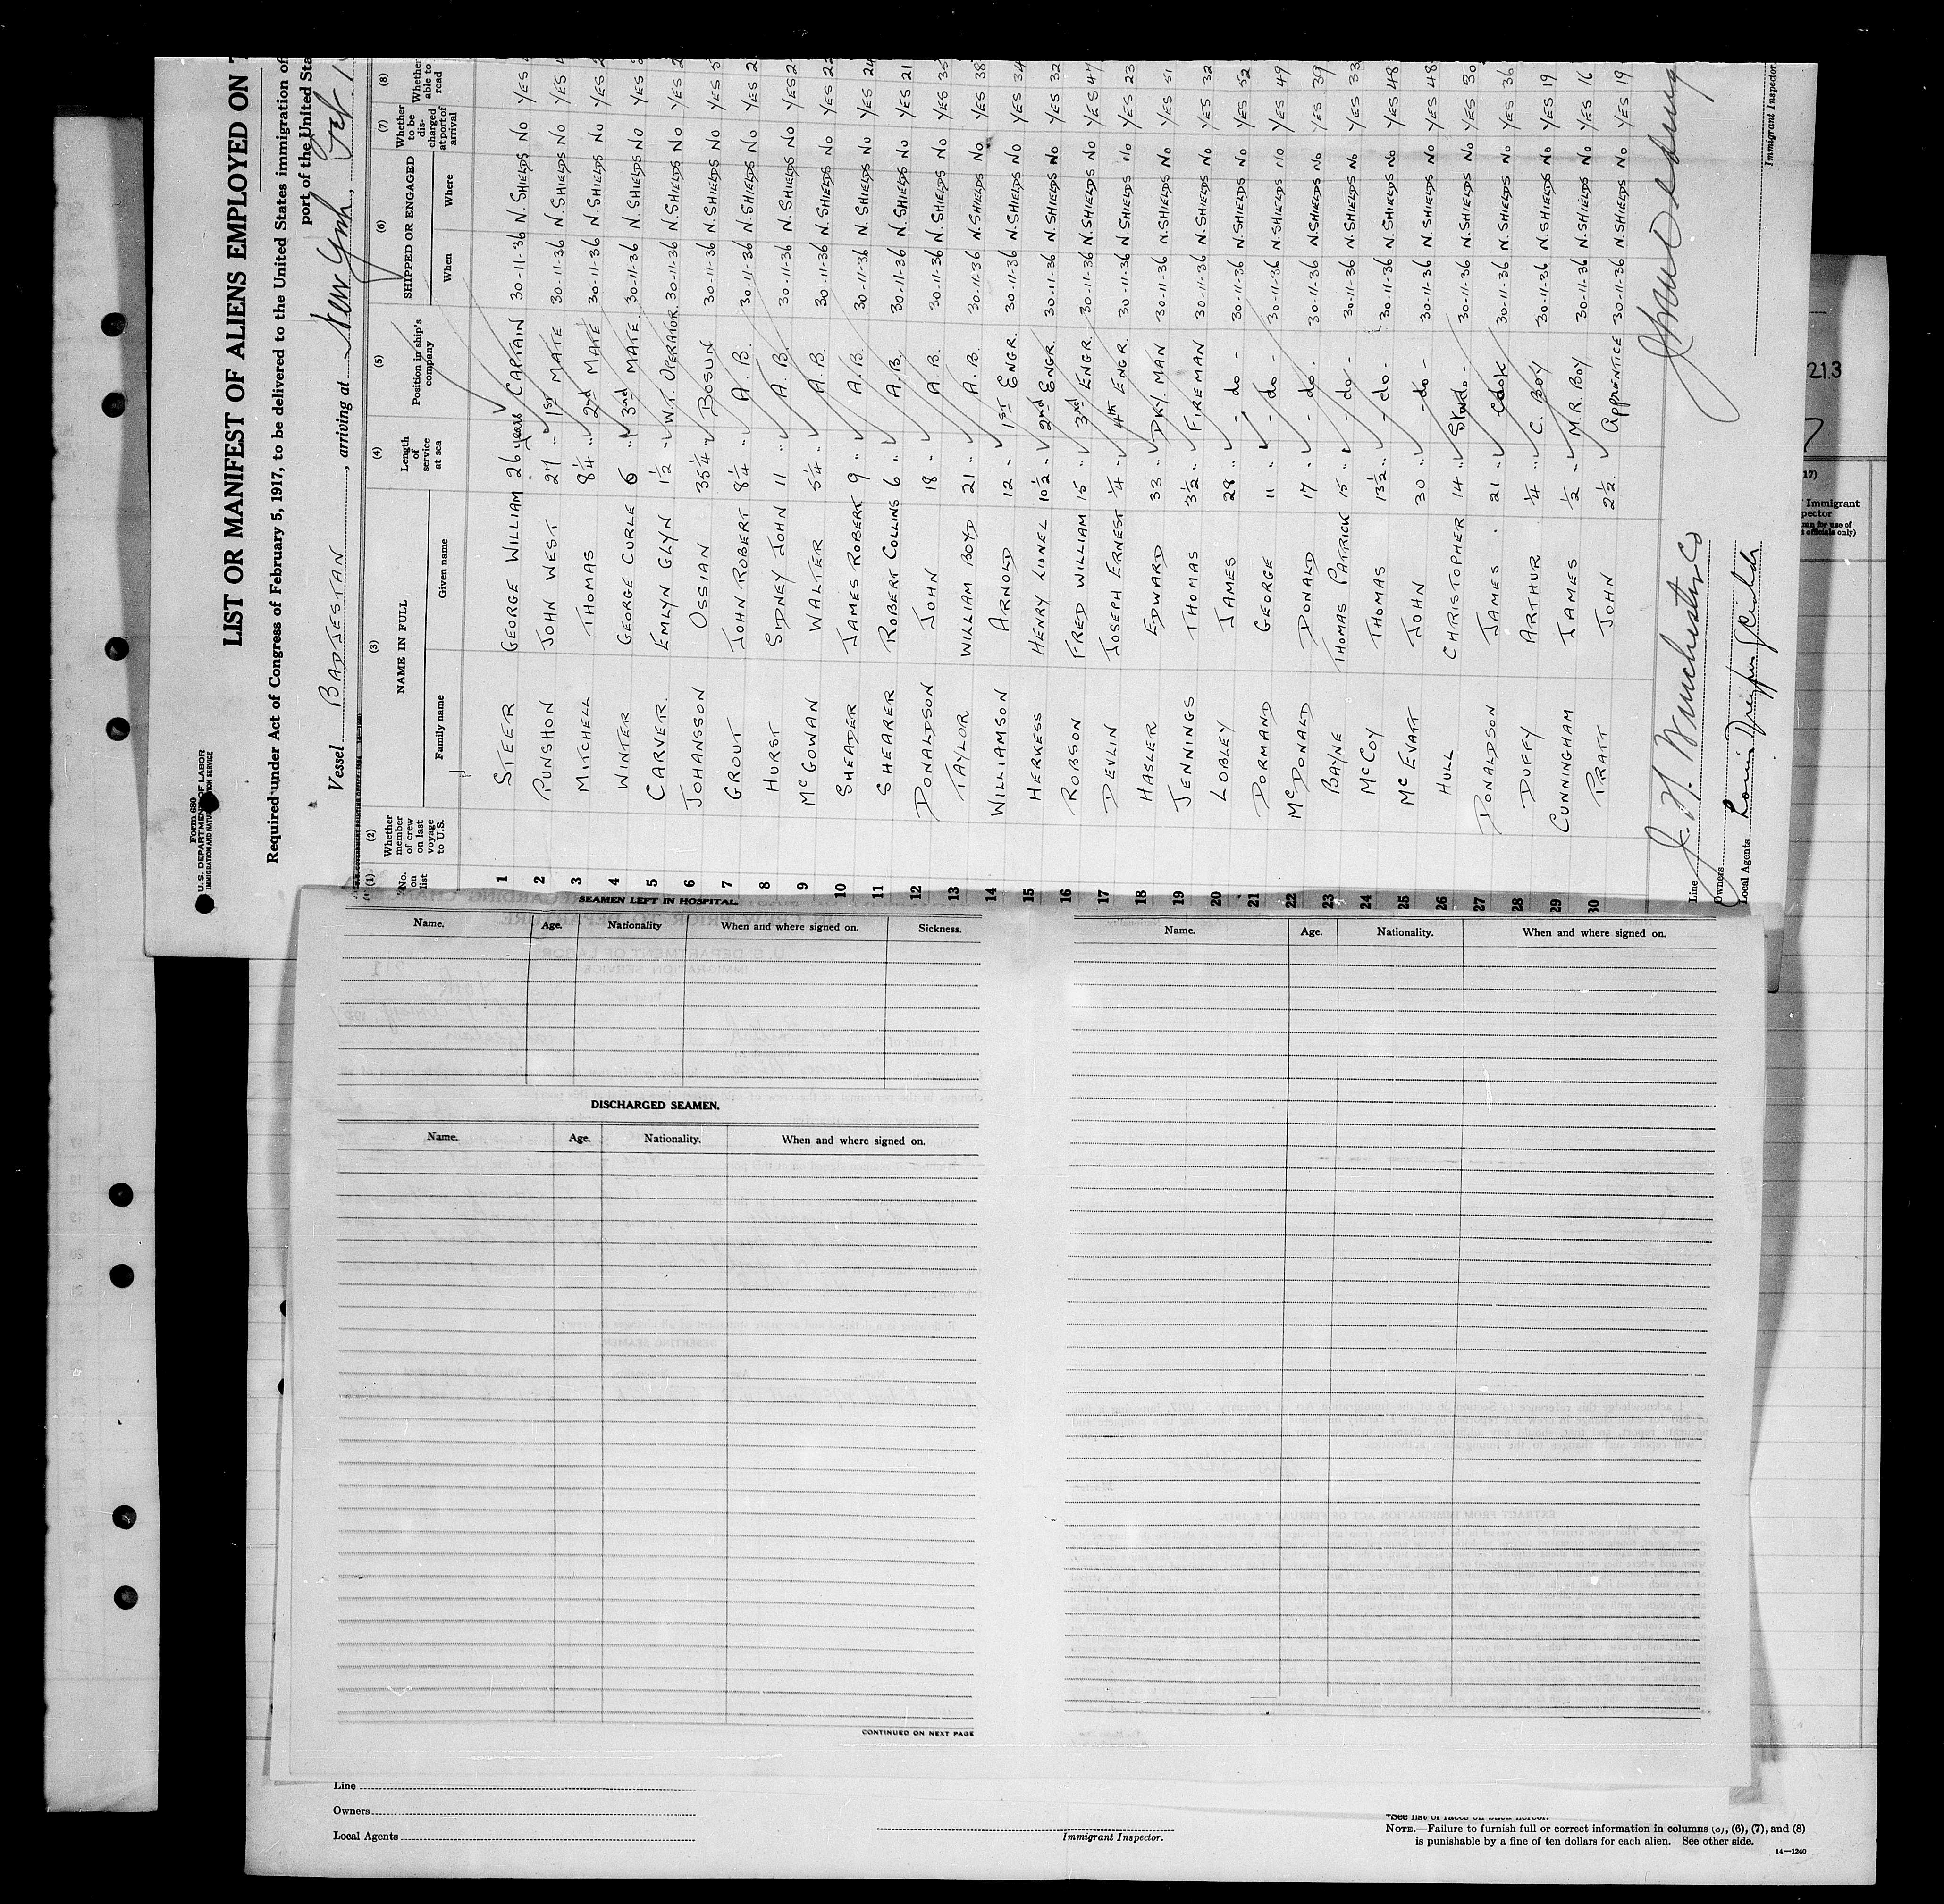 Form 680
U. S. DEPARTMENT OF LABOR
IMMIGRATION AND NATURALIZATION SERVICE
LIST OR MANIFEST OF ALIENS EMPLOYED ON
Required under Act of Congress of February 5, 1917, to be delivered to the United States immigration
port of the United
Vessel BADJESTAN, arriving at New York,
(1) No. on list (2) Whether member of crew on last voyage to U.S. (3) NAME IN FULL Family name Given name (4) Length of service at sea (5) Position in ship's company (6) SHIPPED OR ENGAGED When Where (7) Whether to be discharged at port of arrival (8) Whether able to read
1 STEER GEORGE WILLIAM 26 years CAPTAIN 30-11-36 N. SHIELDS NO YES
2 PUNSHON JOHN WEST 27 " 1st MATE 30-11-36 N. SHIELDS NO YES
3 MITCHELL THOMAS 8¼ " 2nd MATE 30-11-36 N. SHIELDS NO YES
4 WINTER GEORGE CURLE 6 " 3nd MATE 30-11-36 N. SHIELDS NO YES
5 CARVER. EMLYN GLYN 1½ " W.T. OPERATOR. 30-11-36 N. SHIELDS NO YES
6 JOHANSSON OSSIAN 35¼ " BOSUN 30-11-36 N. SHIELDS NO YES
7 GROUT JOHN ROBERT 8¼ " A. B. 30-11-36 N. SHIELDS NO YES
8 HURST SIDNEY JOHN 11 " A. B. 30-11-36 N. SHIELDS NO YES
9 McGOWAN WALTER 5¼ " A. B. 30-11-36 N. SHIELDS NO YES 22
10 SHEADER JAMES ROBERT 9 " A. B. 30-11-36 N. SHIELDS NO YES 24
11 SHEARER ROBERT COLLINS 6 " A. B. 30-11-36 N. SHIELDS NO YES 21
12 DONALDSON JOHN 18 " A. B. 30-11-36 N. SHIELDS NO YES 35
13 TAYLOR WILLIAM BOYD 21 " A. B. 30-11-36 N. SHIELDS NO YES 38
14 WILLIAMSON ARNOLD 12 " 1st ENGR. 30-11-36 N. SHIELDS NO YES 34
15 HERKESS HENRY LIONEL 10½ " 2nd ENGR. 30-11-36 N. SHIELDS NO YES 32
16 ROBSON FRED WILLIAM 15 " 3rd ENGR. 30-11-36 N. SHIELDS NO YES 47
17 DEVLIN JOSEPH ERNEST ¼ " 4th ENGR. 30-11-36 N. SHIELDS NO YES 23
18 HASLER EDWARD 33 " DKY. MAN 30-11-36 N. SHIELDS NO YES 51
19 JENNINGS THOMAS 3½ " FIREMAN 30-11-36 N. SHIELDS NO YES 32
20 LOBLEY JAMES 28 " - do - 30-11-36 N. SHIELDS NO YES 52
21 DORMAND GEORGE 11 " - do - 30-11-36 N. SHIELDS NO YES 49
22 McDONALD DONALD 17 " - do - 30-11-36 N. SHIELDS NO YES 39
23 BAYNE THOMAS PATRICK 15 " - do - 30-11-36 N. SHIELDS NO YES 33
24 McCOY THOMAS 13½ " - do - 30-11-36 N. SHIELDS NO YES 48
25 McEVATT JOHN 30 " - do - 30-11-36 N. SHIELDS NO YES 48
26 HULL CHRISTOPHER 14 " 30-11-36 N. SHIELDS NO YES 30
27 DONALDSON JAMES . 21 " Cook 30-11-36 N. SHIELDS NO YES 36
28 DUFFY ARTHUR ¼ " C. BOY 30-11-36 N. SHIELDS NO YES 19
29 CUNNINGHAM JAMES ½ " M.R. BOY 30-11-36 N. SHIELDS NO YES 16
30 PRATT JOHN 2½ " APPRENTICE 30-11-36 N. SHIELDS NO YES 19
Line J. H. Winchester Co
Owners
Local Agents Louis Dreyfus
Immigrant Inspector
SEAMEN LEFT IN HOSPITAL.
Name. Age. Nationality When and where signed on. Sickness.
DISCHARGED SEAMEN.
Name. Age. Nationality. When and where signed on.
CONTINUED ON NEXT PAGE
Name. Age. Nationality. When and where signed on.
213
Immigrant
Line
Owners
Local Agents
Immigrant Inspector.
*See list of races on back hereof.
NOTE.—Failure to furnish full or correct information in columns (5), (6), (7), and (8)
is punishable by a fine of ten dollars for each alien. See other side.
14—1240